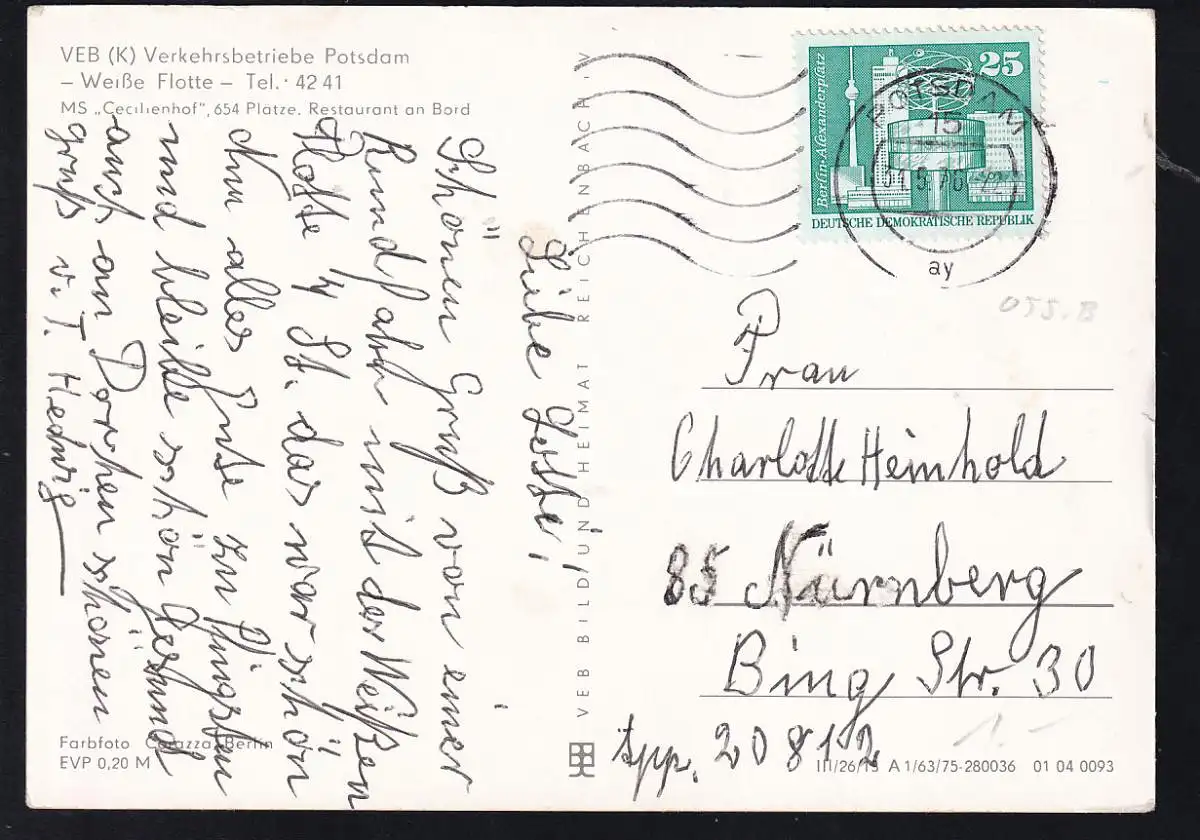 VEB (K) Verkehrsbetriebe Potsdam
– Weiße Flotte – Tel. 42 41
MS „Cecilienhof", 654 Plätze. Restaurant an Bord
Liebe Lotte!
Schönen Gruß von einer
Rundfahrt mit der Weißen
Flotte 4 St. das war schön
Nun alles Gute zu Pfingsten
und bleibe schön Gesund
auch an Dorchen schönen
gruß v. T. Hedwig
Farbfoto Corazza, Berlin
EVP 0,20 M
VEB BILD UND HEIMAT REICHENBACH IV
25
Berlin · Alexanderplatz
DEUTSCHE DEMOKRATISCHE REPUBLIK
POTSDAM
15
ay
Frau
Charlotte Heinhold
85 Nürnberg
Bing Str. 30
App. 20812
III/26/13 A 1/63/75-280036 01 04 0093
1.-